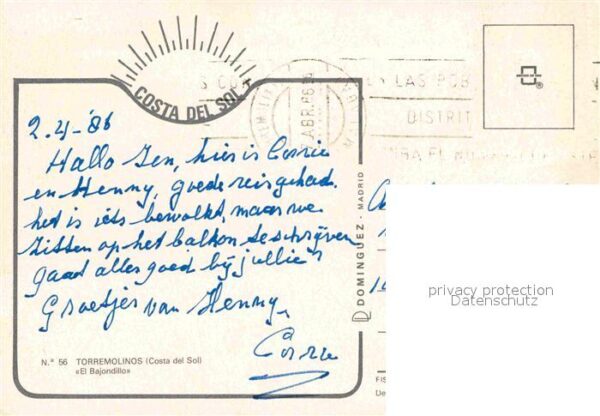 COSTA DEL SOL
ABR. 86
LAS POB
DISTRIT
2.4-'86
Hallo Jen, hier is Corrie
en Henny, goede reis gehad.
het is iets bewolkt, maar we
zitten op het balkon te schrijven
gaad alles goed bij jullie?
Groetjes van Henny.
Corrie
N.º 56 TORREMOLINOS (Costa del Sol)
«El Bajondillo»
DOMINGUEZ - MADRID
privacy protection
Datenschutz
FIS
De